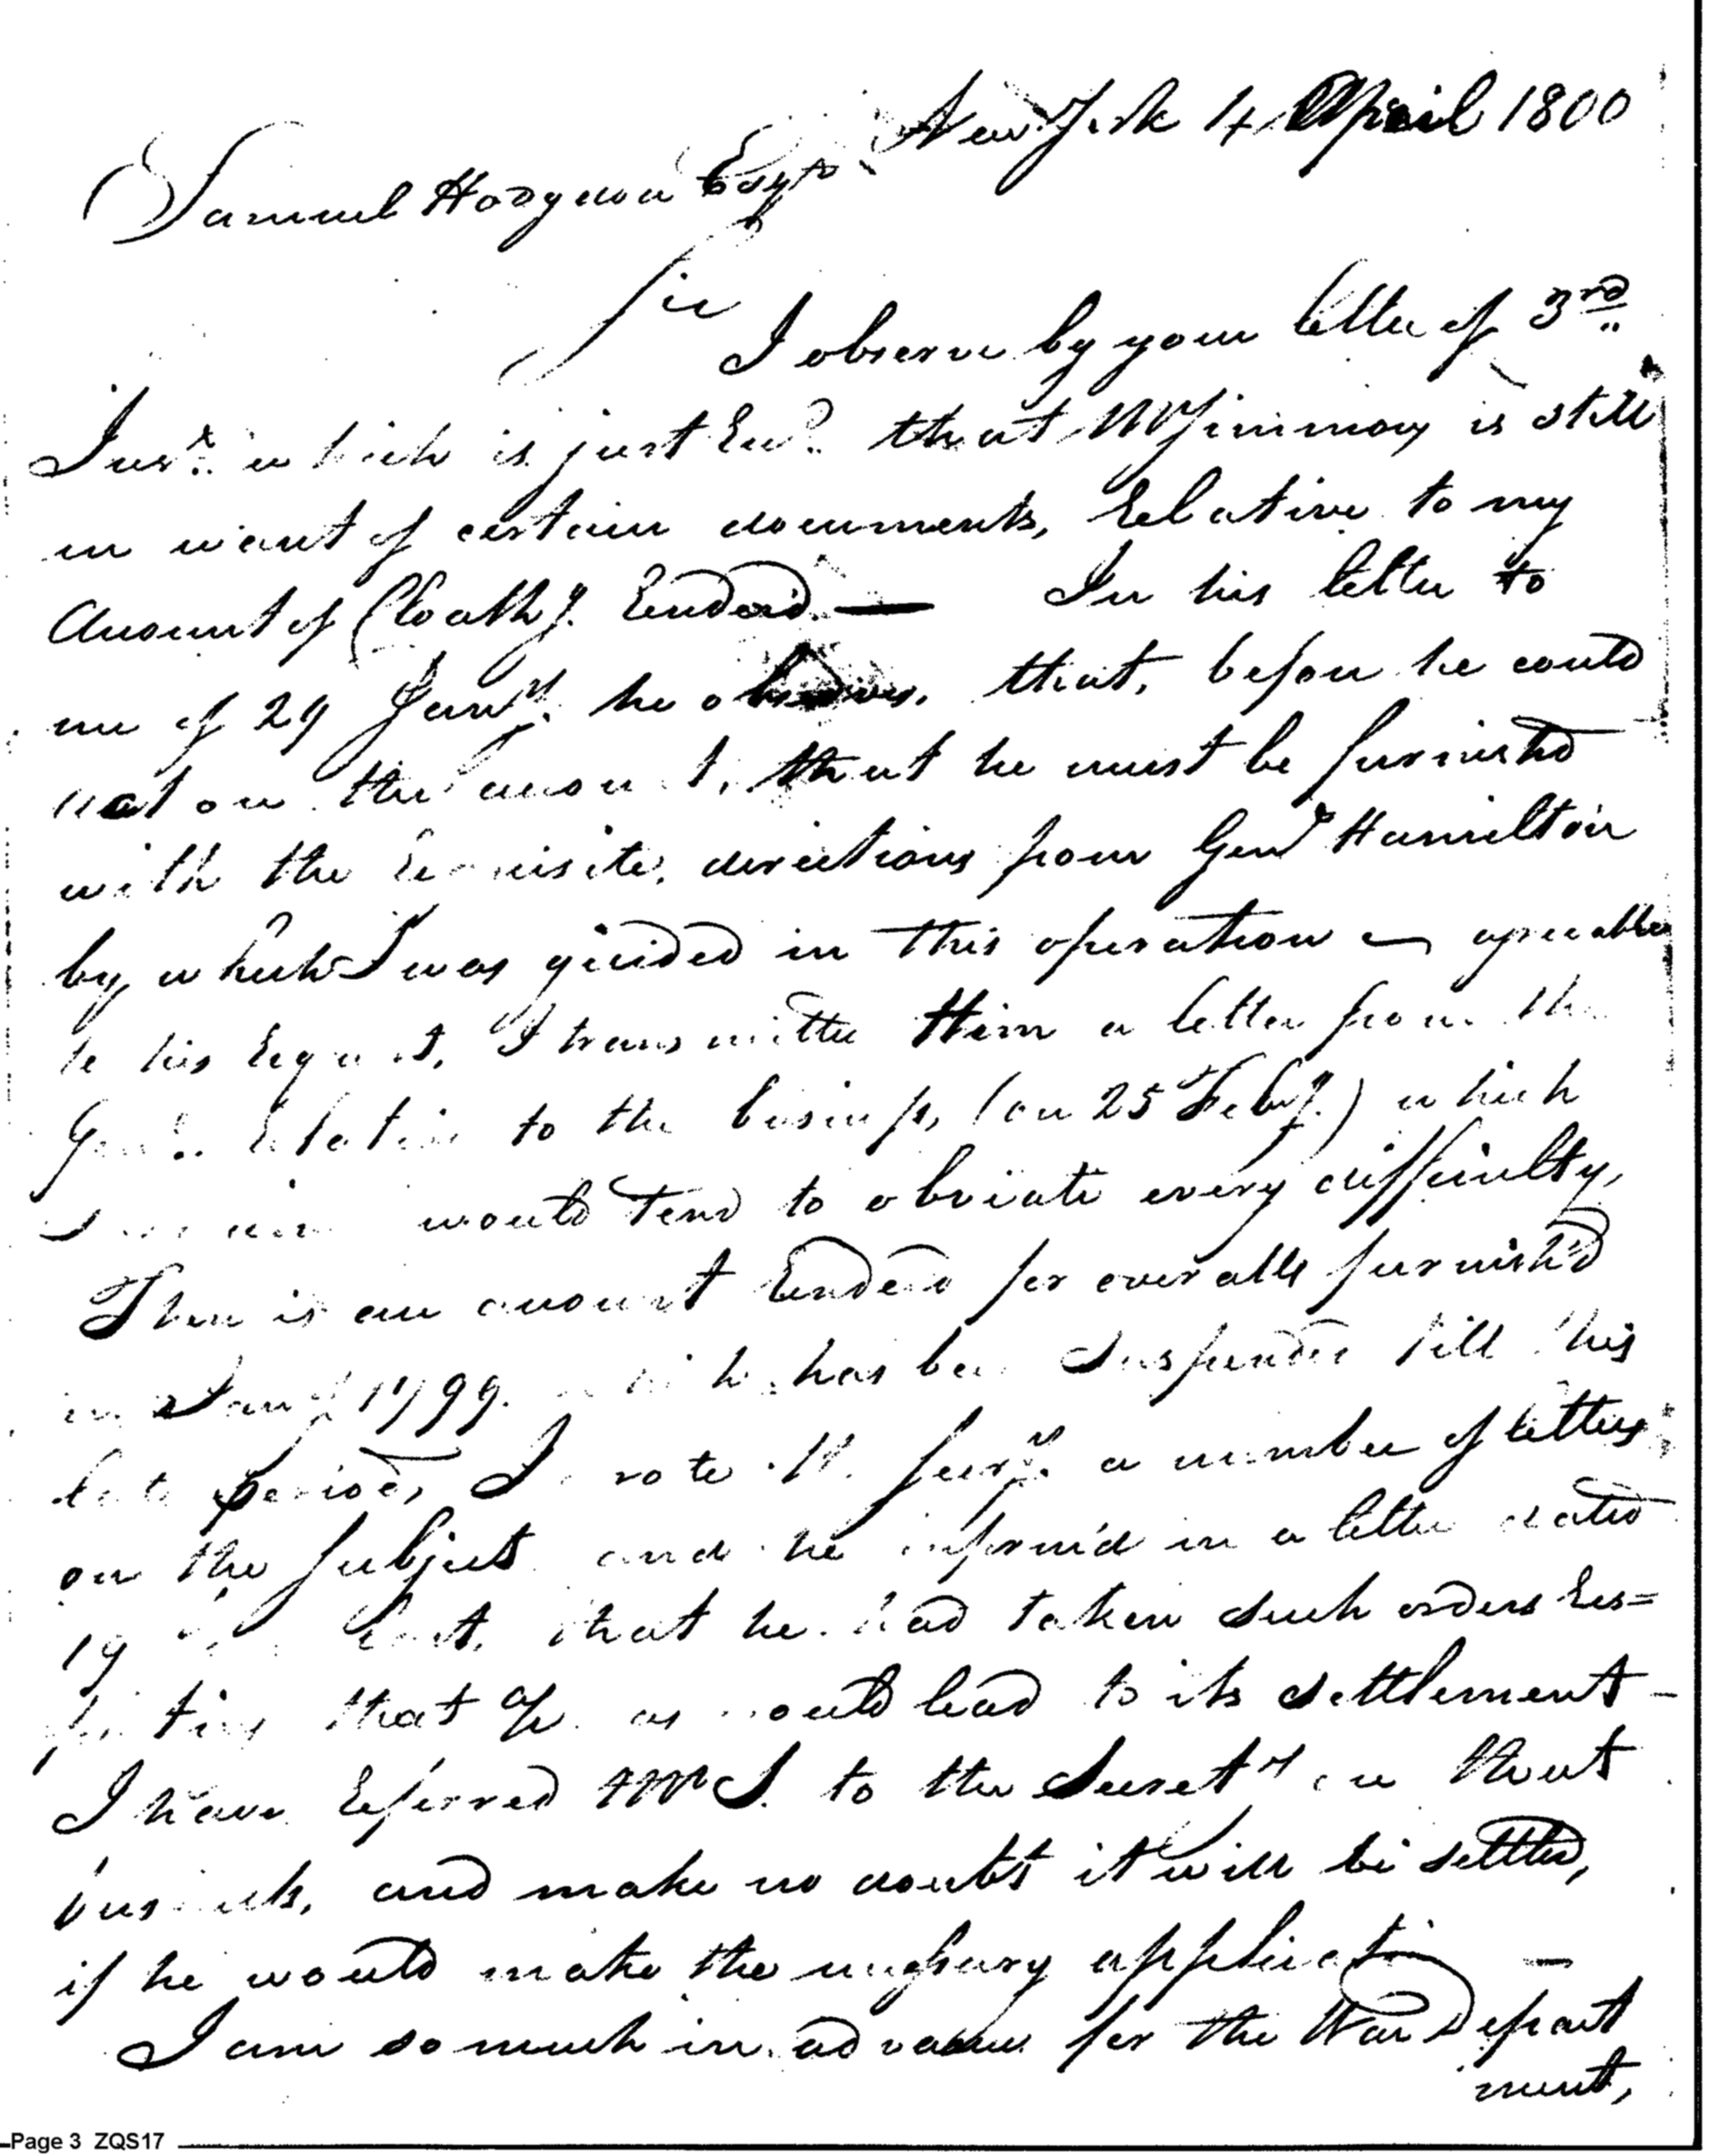 New York 4 April 1800
Samuel Hodgdon Esqr
Sir
I observe by your letter of 3rd
Inst. which is just Recd. that Mr Simmons is still
in want of certain documents, Relative to my
Account of Cloathg. Renderd. — In his letter to
me of 29 Jany. he observes, that, before he could
act on the account, that he must be furnishd
with the Requisite, directions from Genl Hamilton
by which I was guided in this operation — agreeable
to his Request, I transmitted Him a letter from the
Genl. Relative to the business, (on 25 Feby.) which
would tend to obviate every difficulty,
There is an account Renderd for overalls furnish'd
in Jany 1799. which has been Suspended till this
late period, I wrote the Secry. a number of letters
on the Subject and he inform'd in a letter dated
19 that he had taken such orders Res=
pecting that a/c as would lead to its Settlement –
I have Referred Mr S. to the Secrety on that
business, and make no doubt it will be settled,
if he would make the necessary application —
I am so much in advance for the War Depart
ment,
Page 3 ZQS17